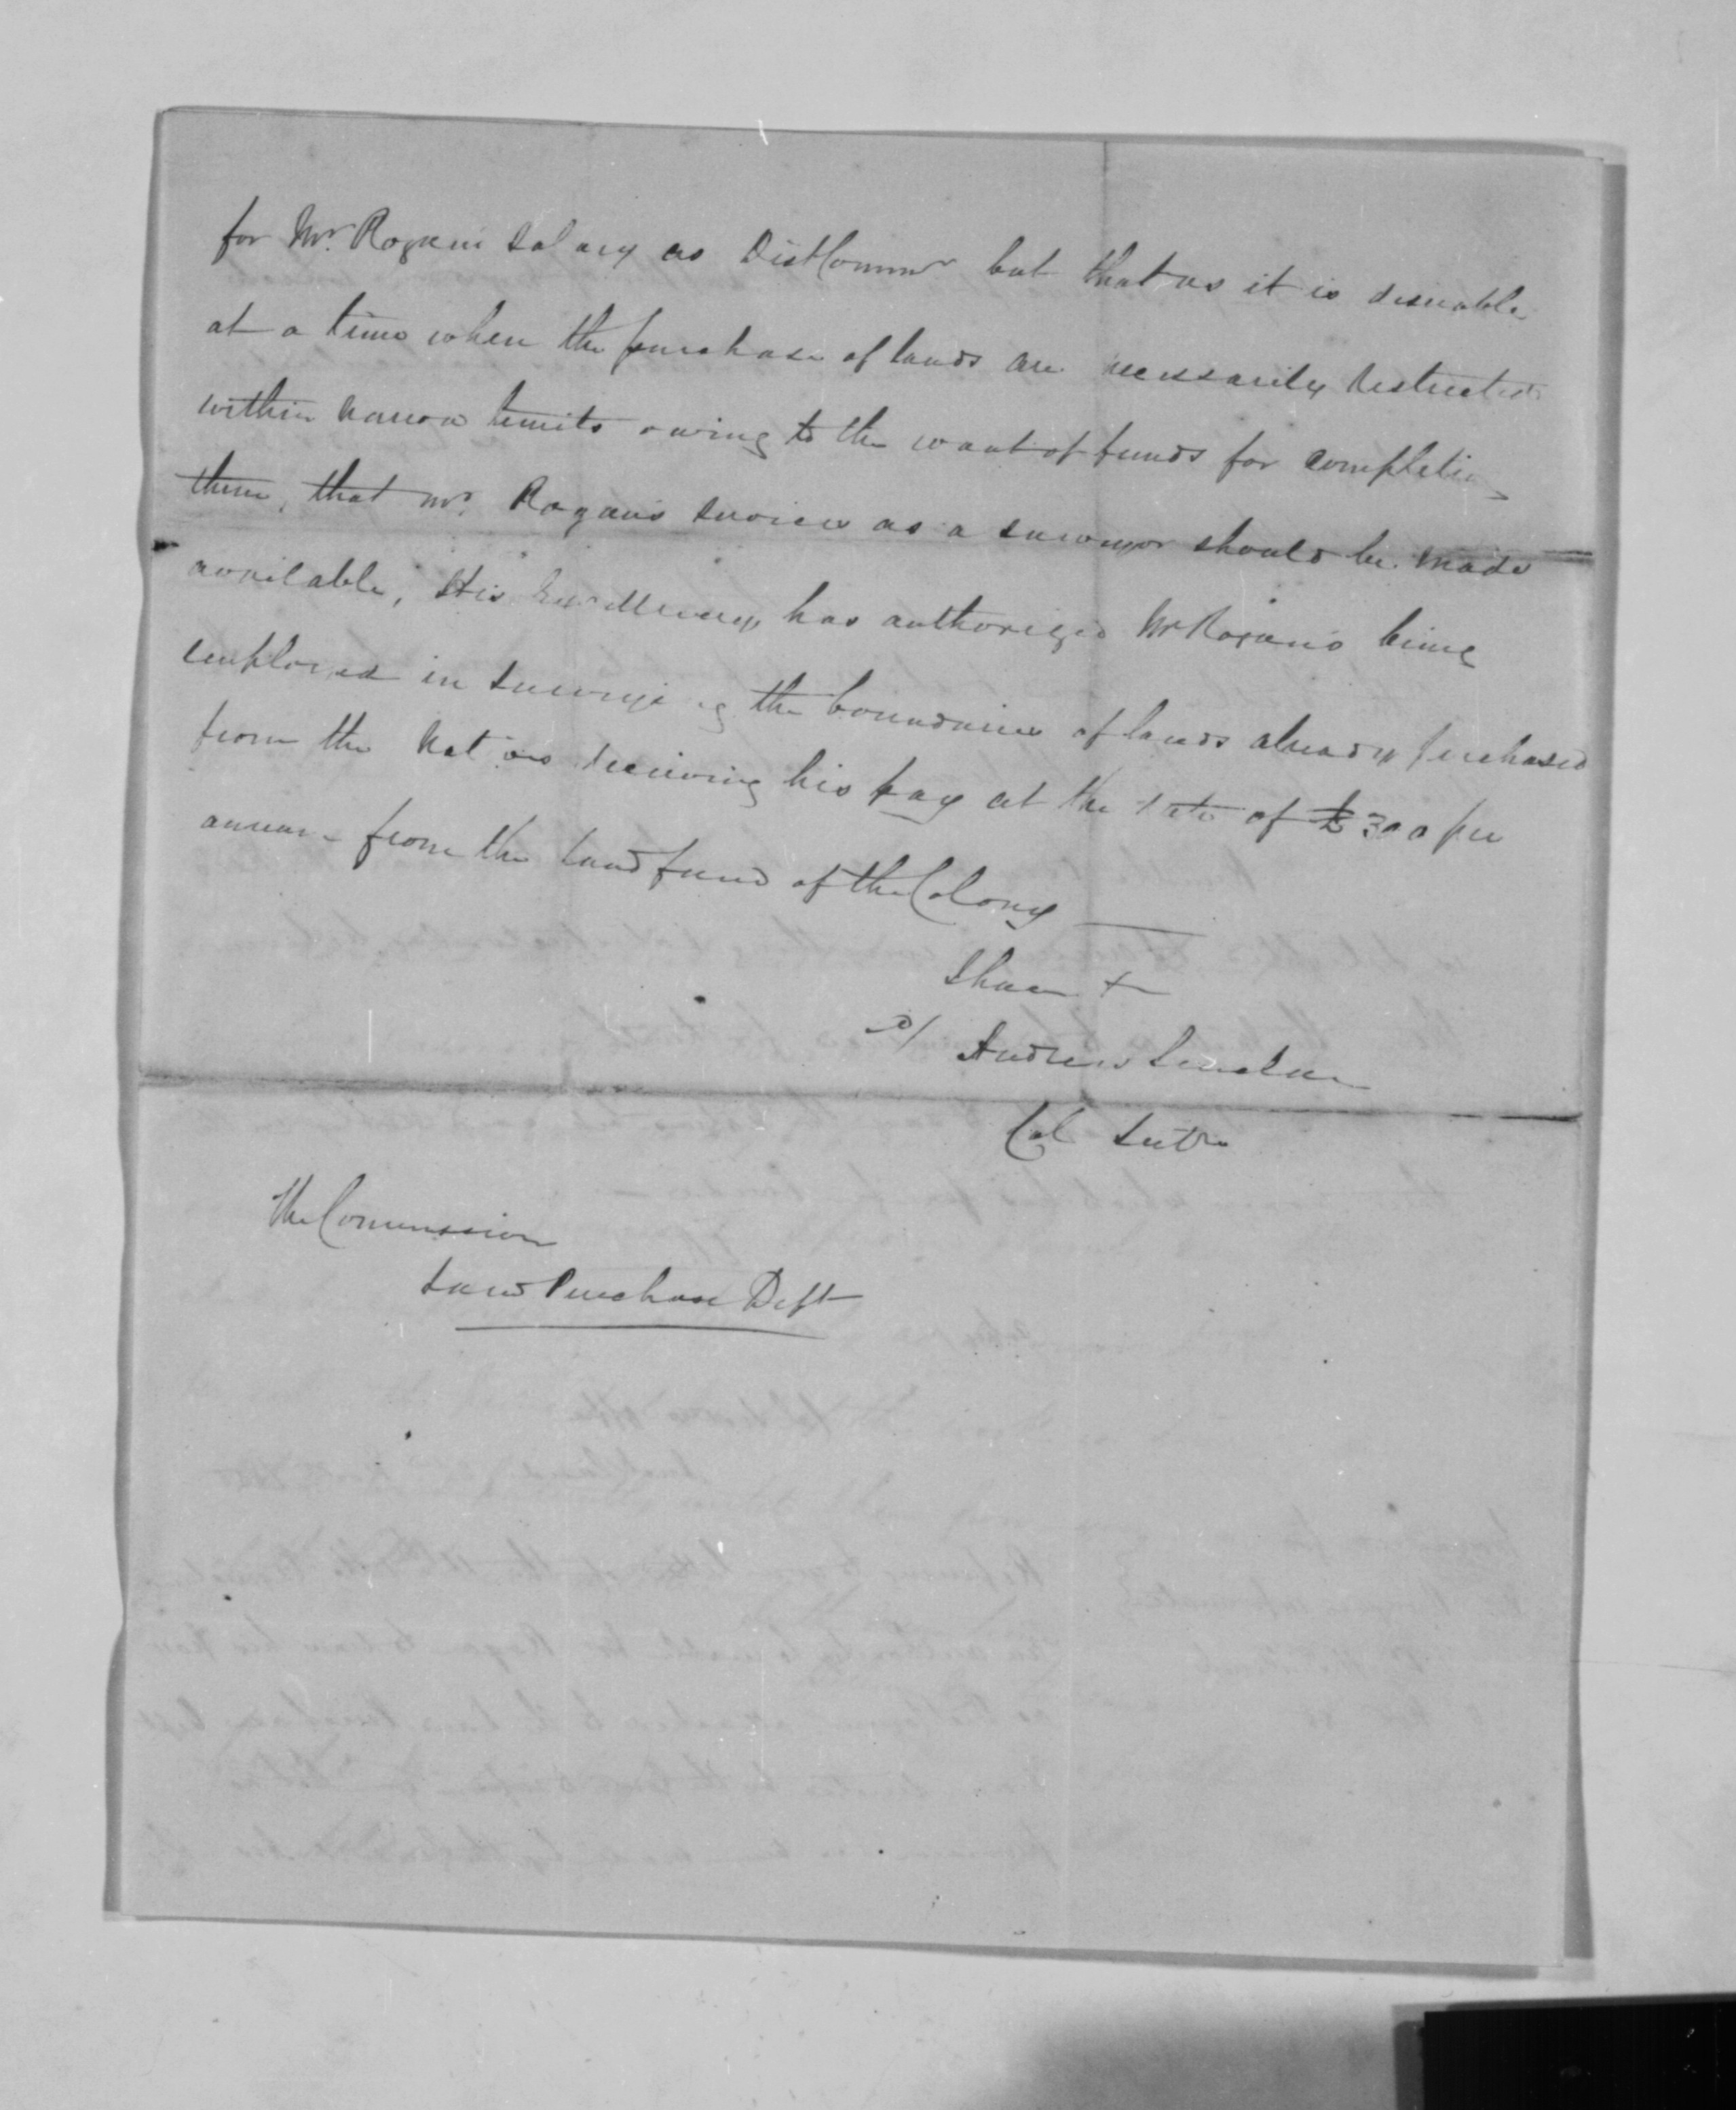 for Mr. Rogan's Salary as Dist Commr but that as it is desirable
at a time when the purchase of lands are necessarily restricted
within narrow limits owing to the want of funds for completing
them, that Mr. Rogan's services as a surveyor should be made
available, His Excellency has authorized Mr Rogan's being
employed in surveying the boundaries of lands already purchased
from the Natives receiving his pay at the rate of £300 per
annum from the Land fund of the Colony
I have +
s/ Andrew Sinclair
Col Secty
The Commission
Land Purchase Dept